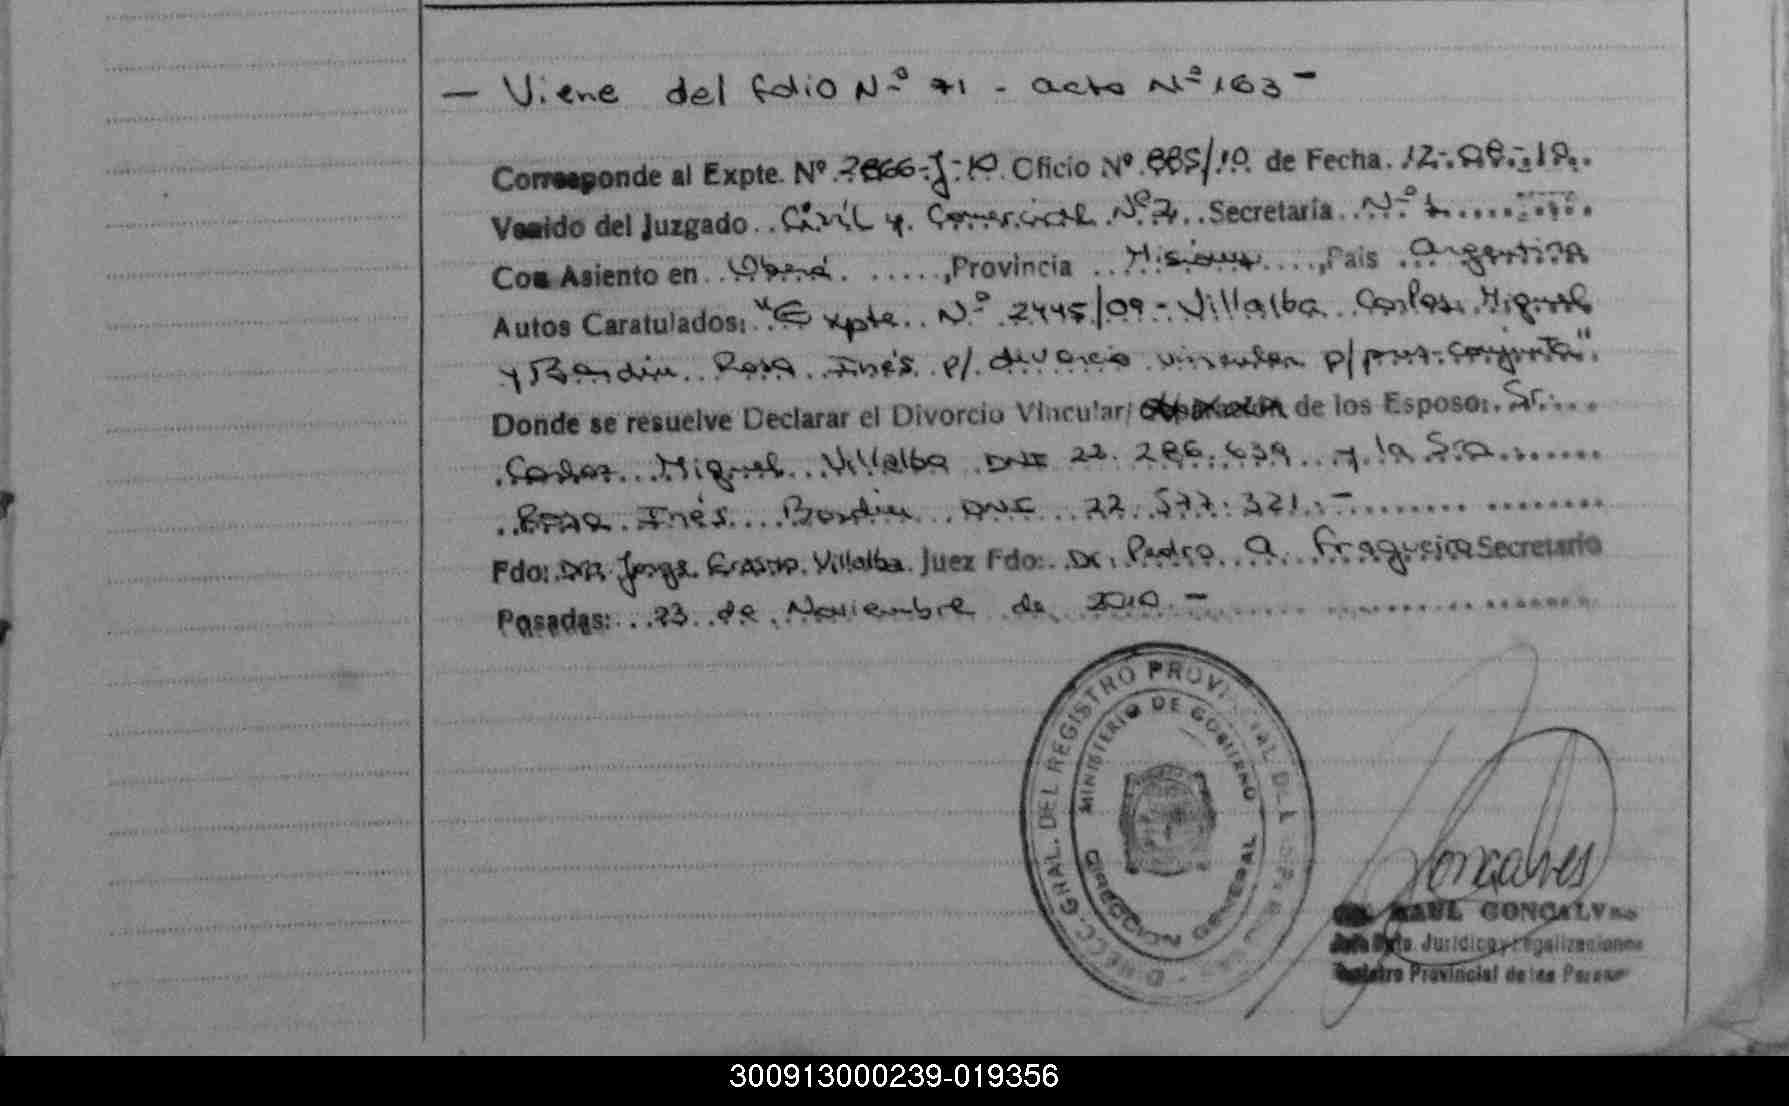 — Viene del folio Nº 71 - acta Nº 163 —
Corresponde al Expte. Nº 2866-J-10 Oficio Nº 885/10 de Fecha. 12-08-10..
Venido del Juzgado.. Civil y Comercial Nº 2.. Secretaría.. Nº 1
Con Asiento en.. Oberá. ....., Provincia .. Misiones...., País ... Argentina
Autos Caratulados: "Expte. Nº 2445/09 - Villalba Carlos Miguel
y Bordin Rosa Inés p/ divorcio vincular p/ pres. conjunta"
Donde se resuelve Declarar el Divorcio Vincular/ de los Esposo: Sr.
Carlos Miguel Villalba DNI 22.286.639 y la Sra
Rosa Inés Bordin DNI 22.577.321.—
Fdo: DR. Jorge Erasmo Villalba. Juez Fdo: Dr. Pedro A. Fragueiro Secretario
Posadas: 23 de Noviembre de 2010.—
DIRECC. GRAL. DEL REGISTRO PROVINCIAL DE LAS PERSONAS
MINISTERIO DE GOBIERNO
DIRECCION GENERAL
Goncalves
RAUL GONCALVES
Jefe Dpto. Jurídico y Legalizaciones
Registro Provincial de las Personas
300913000239-019356